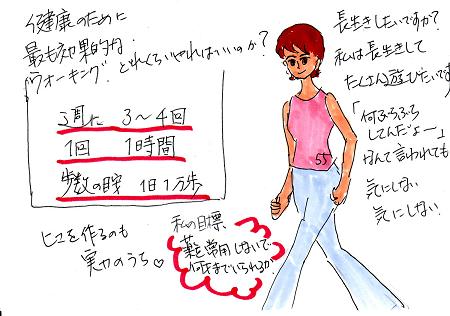 健康のために
最も効果的な
ウォーキング。どれくらいやればいいのか?
週に 3〜4回
1回 1時間
歩数の目安 1日1万歩
ヒマを作るのも
実力のうち♡
私の目標
薬を常用しないで
何才までいられるか?
長生きしたいですか?
私は長生きして
たくさん遊びたいです
「何ぶらぶら
してんだよー」
なんて言われても
気にしない
気にしない
55